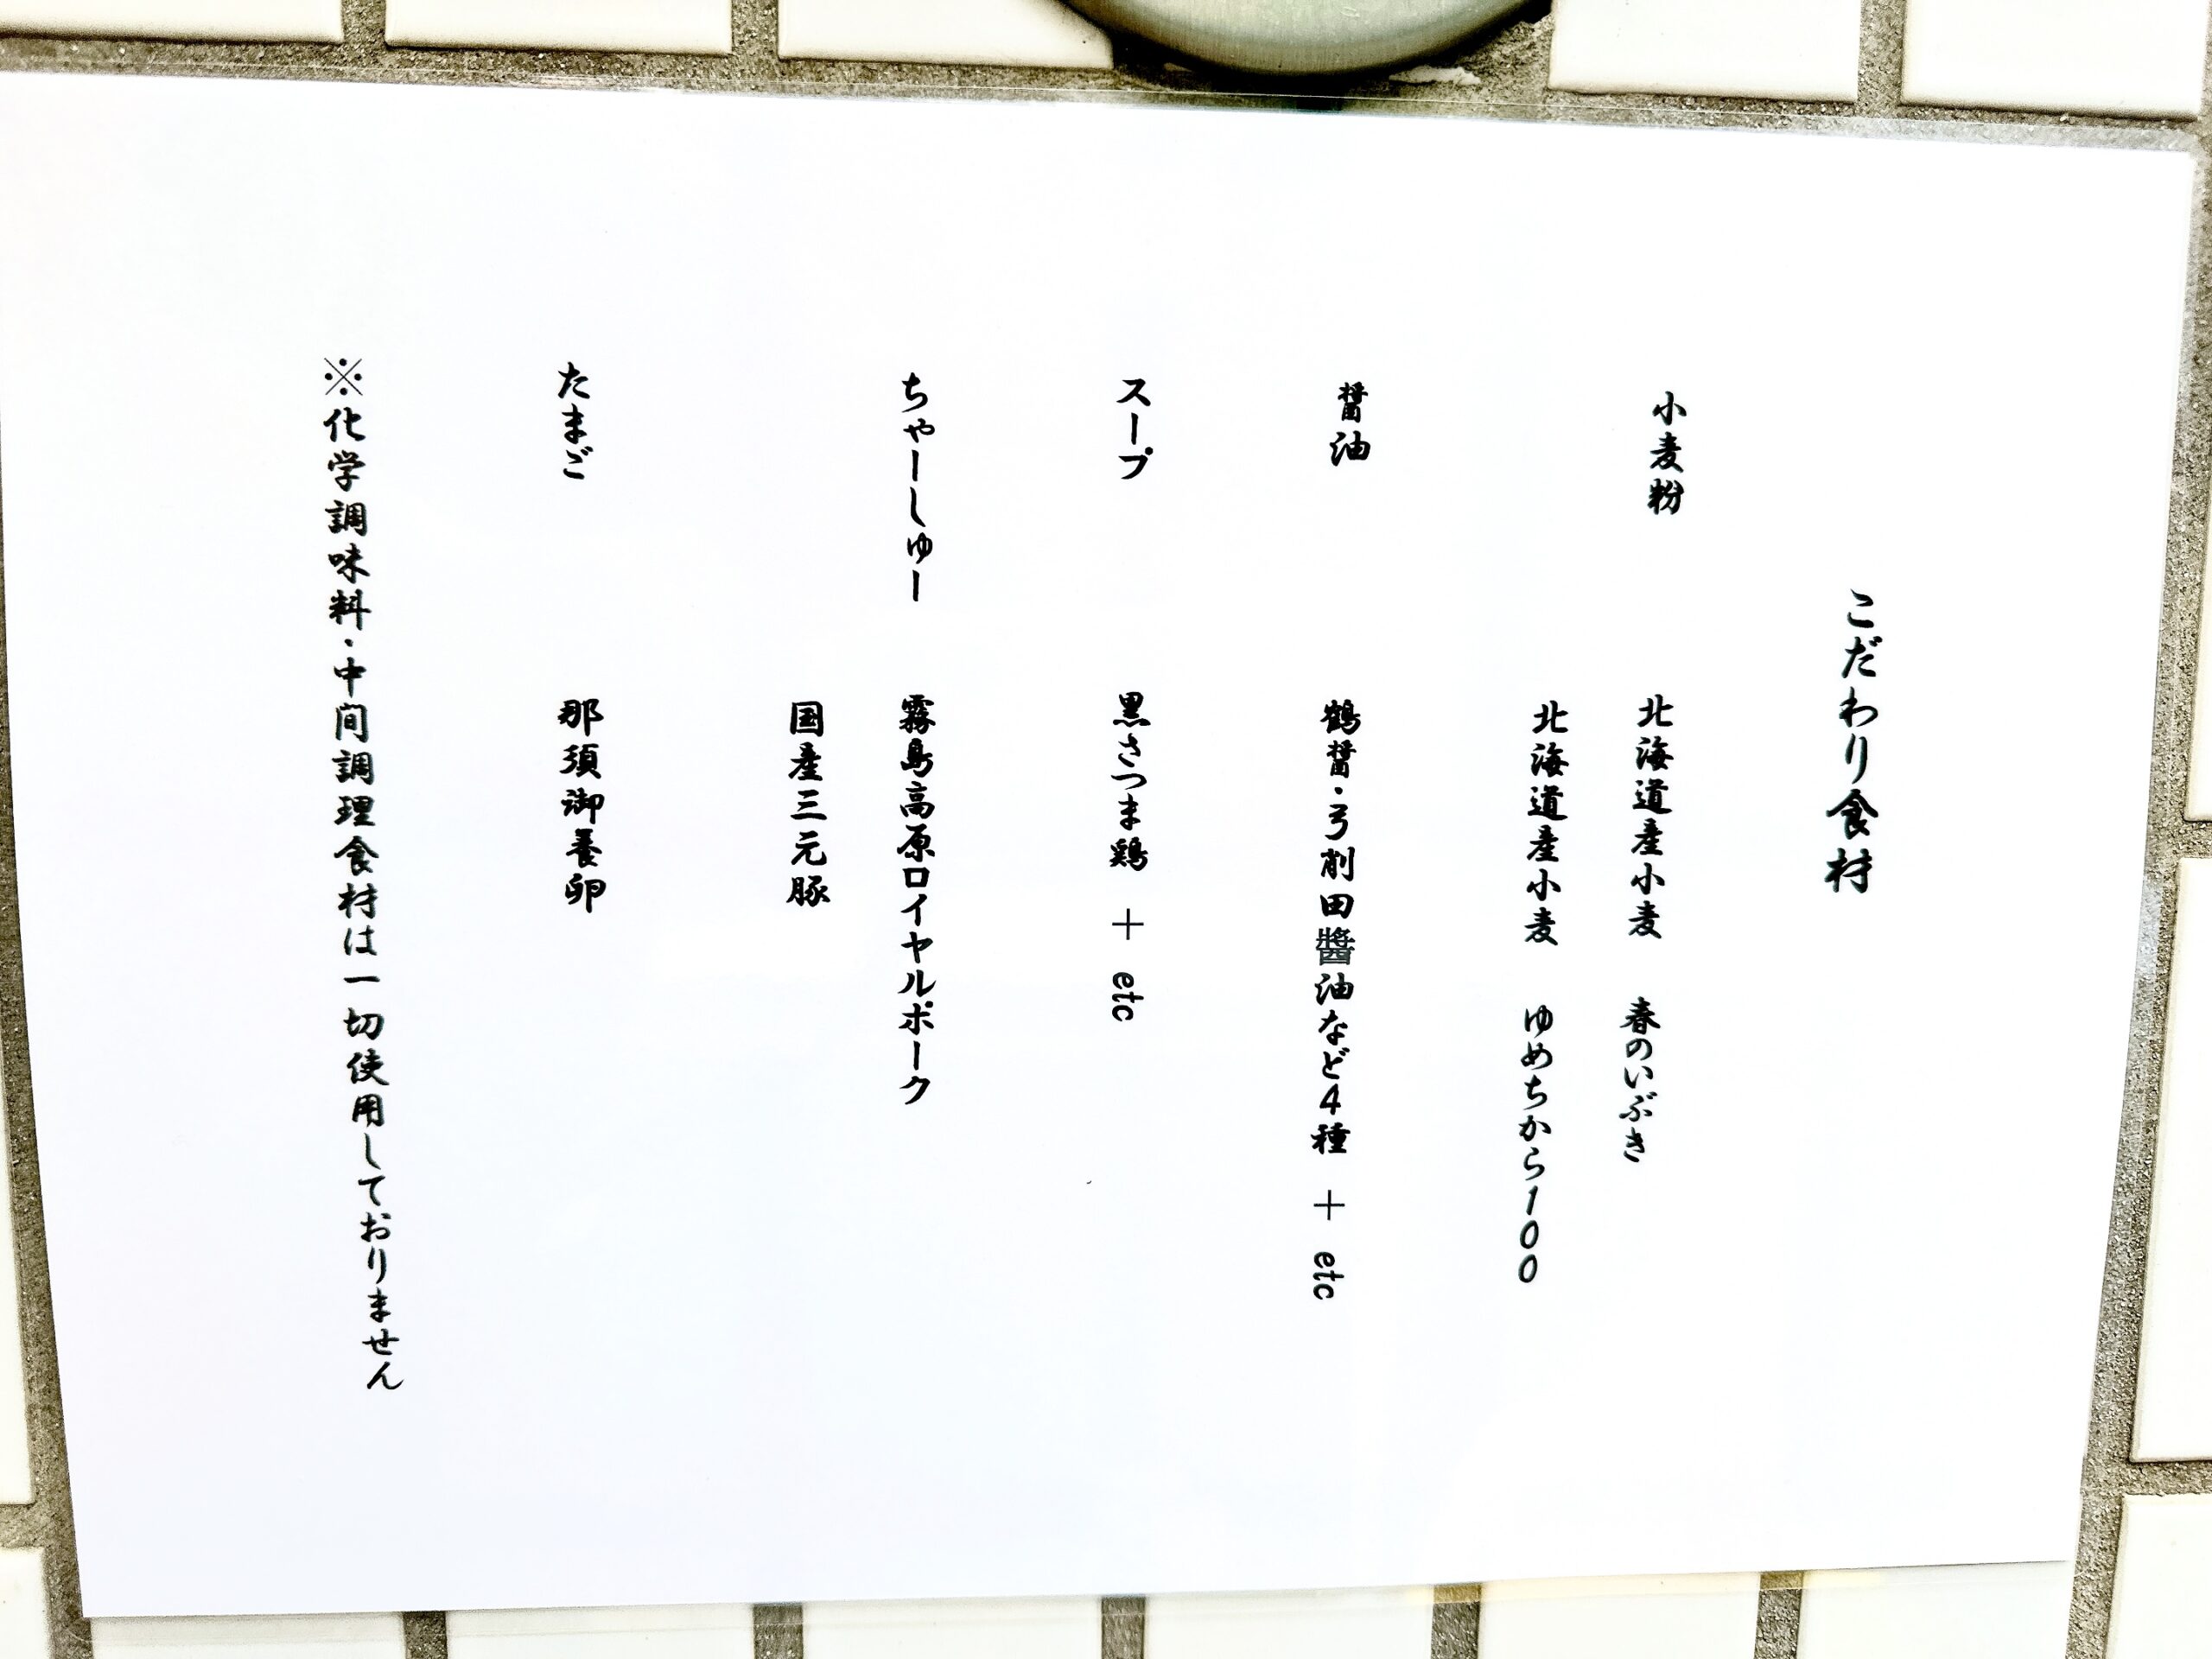 こだわり食材
小麦粉　北海道産小麦　春のいぶき
北海道産小麦　ゆめちから100
醤油　鶴醤・弓削田醬油など4種　＋　etc
スープ　黒さつま鶏　＋　etc
ちゃーしゅー　霧島高原ロイヤルポーク
国産三元豚
たまご　那須御養卵
※化学調味料・中間調理食材は一切使用しておりません